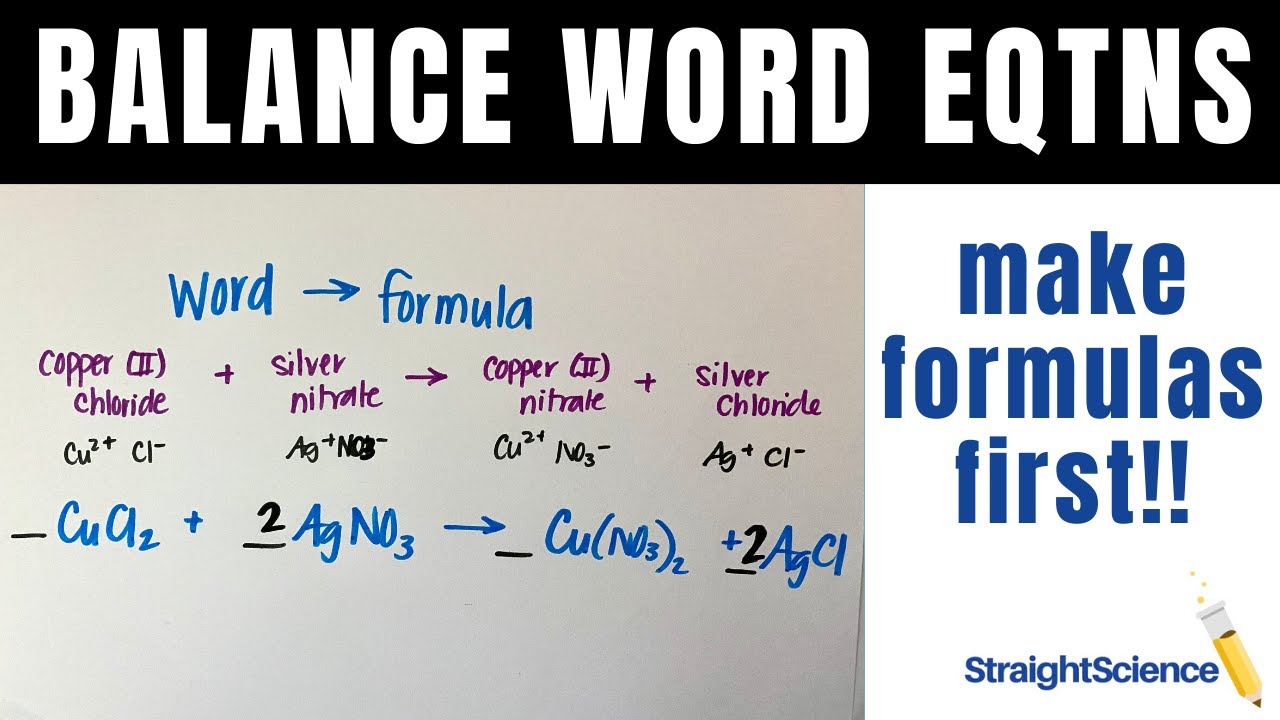 BALANCE WORD EQTNS
word → formula
copper (II) chloride + silver nitrate → copper (II) nitrate + silver chloride
Cu²⁺ Cl⁻ Ag⁺ NO₃⁻ Cu²⁺ NO₃⁻ Ag⁺ Cl⁻
_ CuCl₂ + 2 AgNO₃ → _ Cu(NO₃)₂ + 2 AgCl
make
formulas
first!!
StraightScience